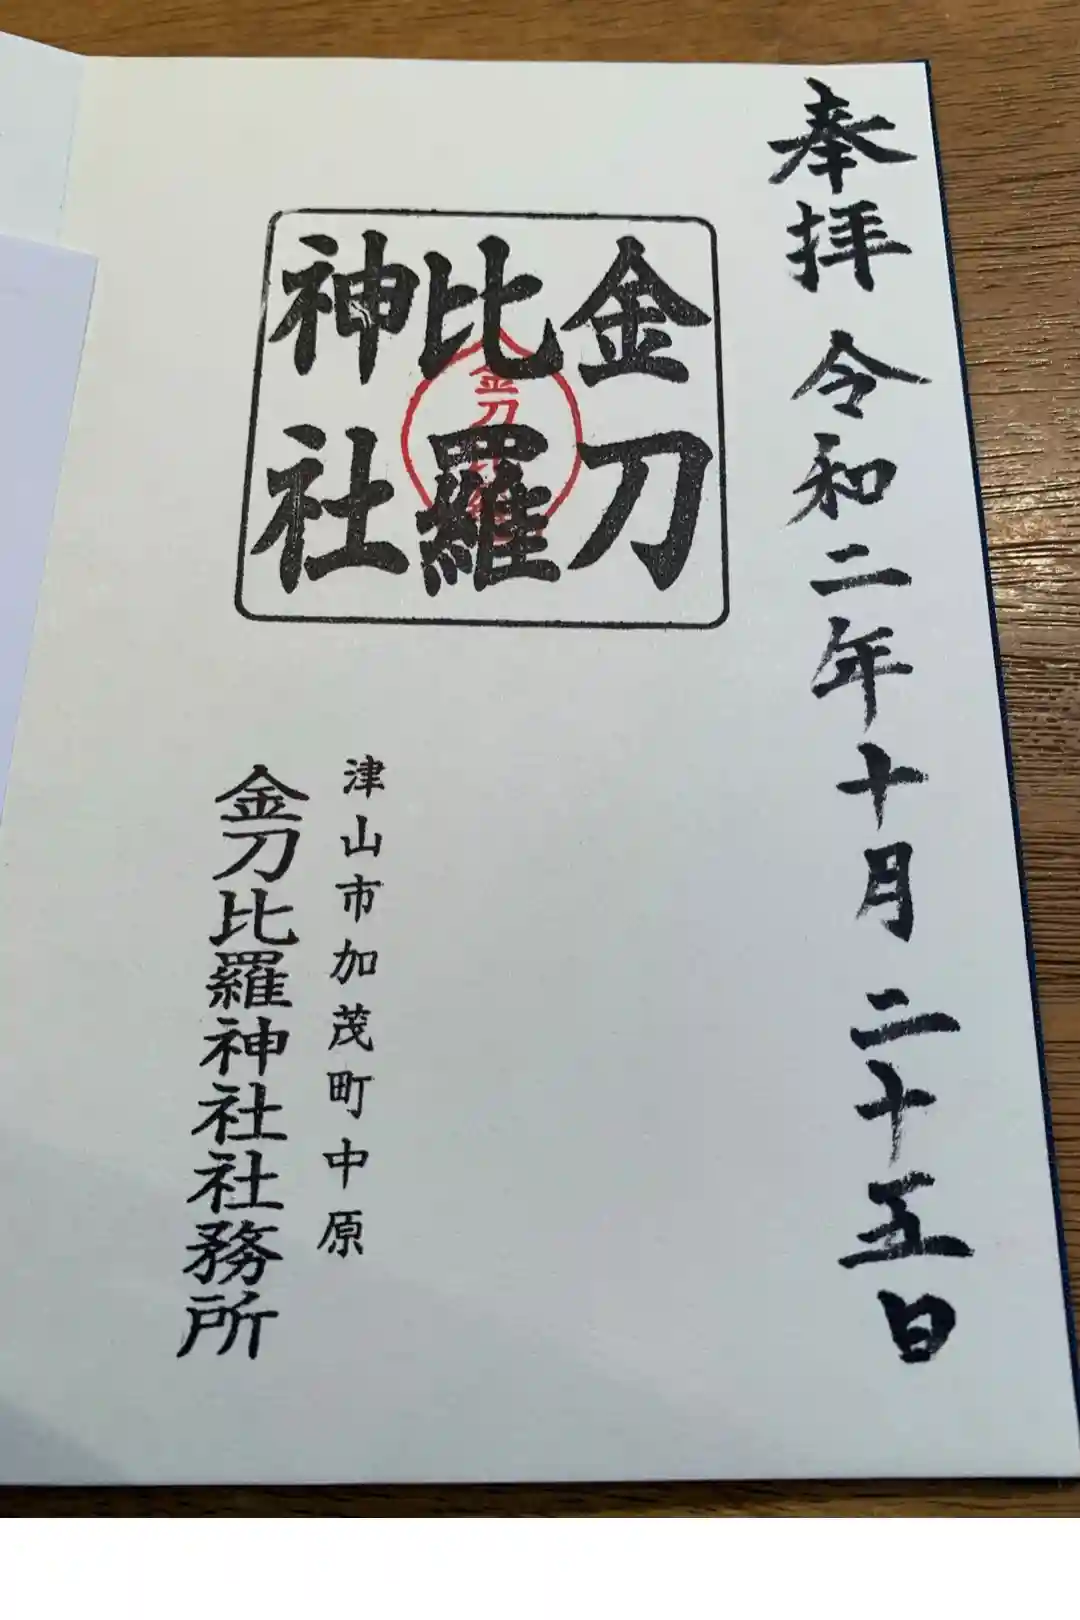 奉拝 令和二年十月二十五日
金刀
比羅
神社
金刀
津山市加茂町中原
金刀比羅神社社務所